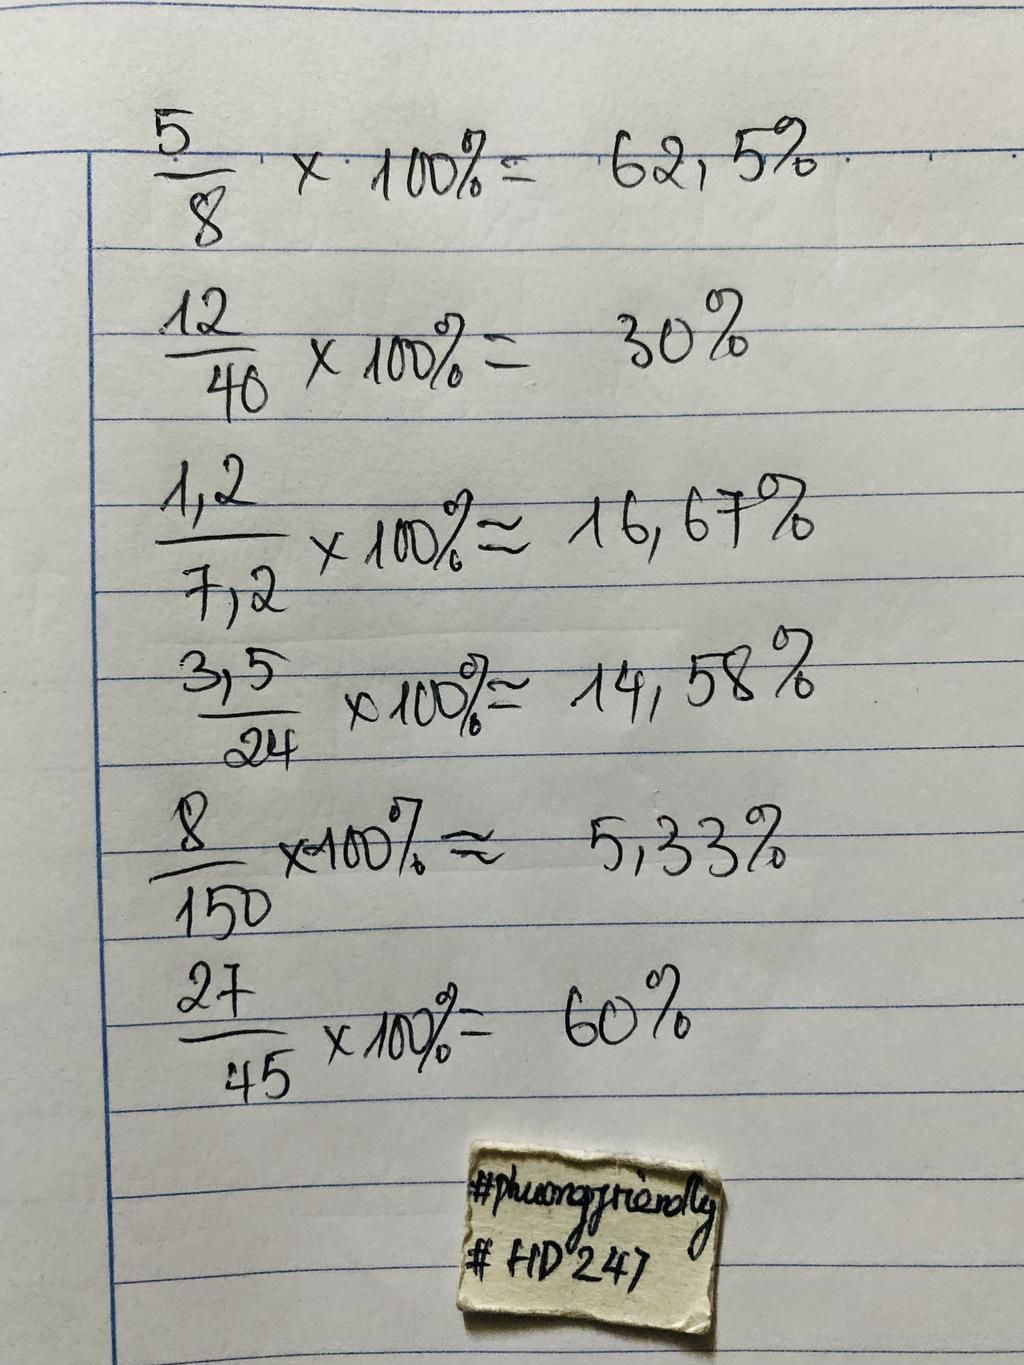 5/8 × 100% = 62,5%
12/40 × 100% = 30%
1,2/7,2 × 100% ≈ 16,67%
3,5/24 × 100% ≈ 14,58%
8/150 × 100% ≈ 5,33%
27/45 × 100% = 60%
#phuongfriendly
# HD 247